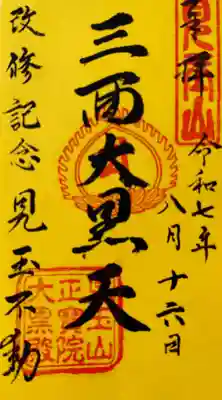 奉拝
令和七年
八月十六日
三面大黒天
改修記念見玉不動
見玉山
正寳院
大黒殿